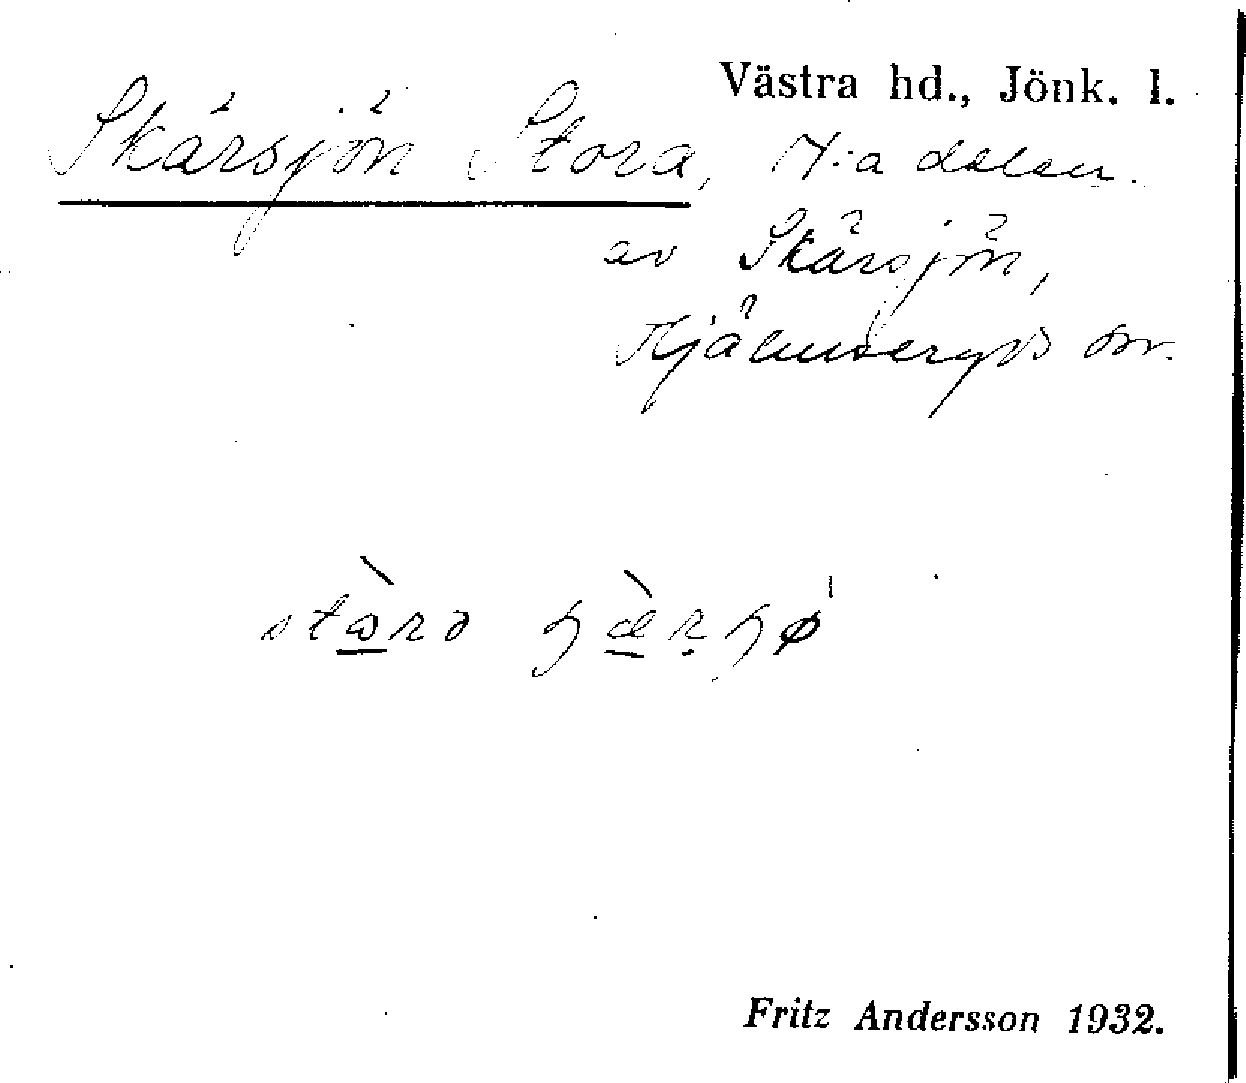 Västra hd., Jönk. l.
Skärsjön Stora, N:a delen.
av Skärsjön,
Hjälmseryds sn.
Fritz Andersson 1932.